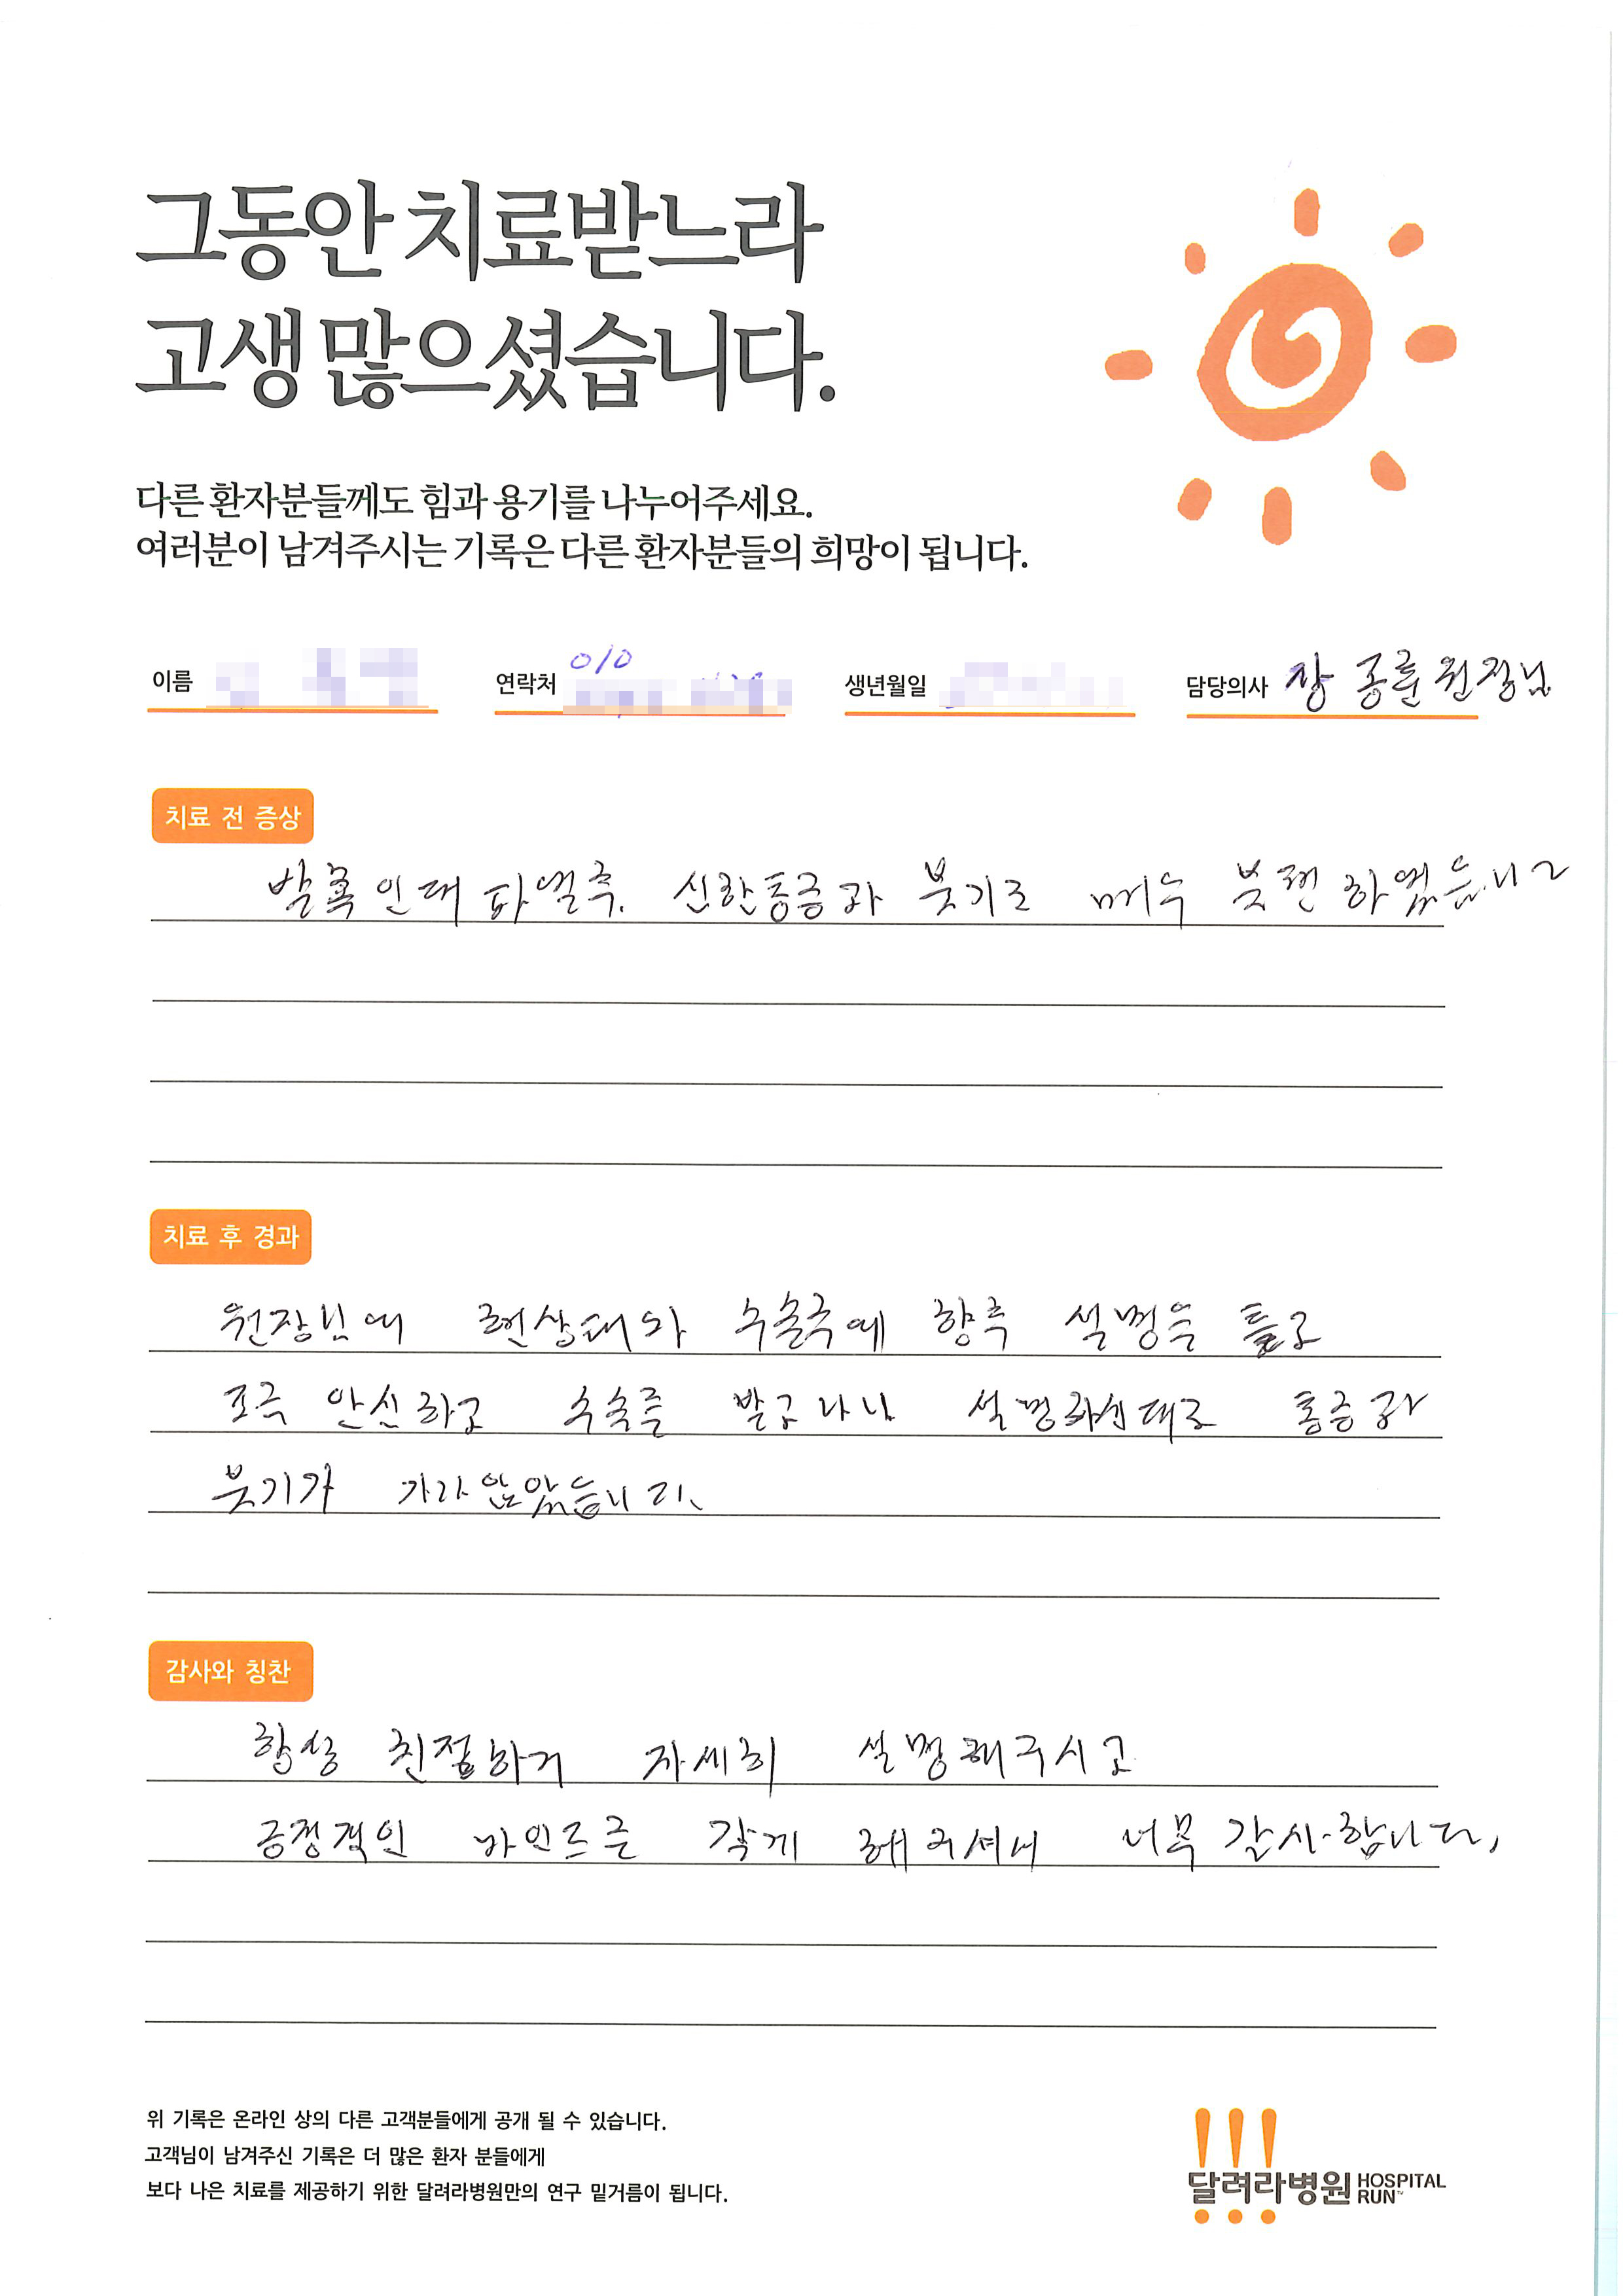 그동안 치료받느라
고생 많으셨습니다.
다른 환자분들께도 힘과 용기를 나누어주세요.
여러분이 남겨주시는 기록은 다른 환자분들의 희망이 됩니다.
이름 연락처 010 생년월일 담당의사 장 종훈 원장님
치료 전 증상
발목 인대 파열후. 심한통증과 붓기로 매우 불편 하였습니다
치료 후 경과
원장님에 현상태와 수술후에 향후 설명을 듣고
조금 안심하고 수술를 받고나니 설명하신대로 통증과
붓기가 가라앉았습니다.
감사와 칭찬
항상 친절하게 자세히 설명해주시고
긍정적인 마인드를 갖게 해주셔서 너무 감사합니다.
위 기록은 온라인 상의 다른 고객분들에게 공개 될 수 있습니다.
고객님이 남겨주신 기록은 더 많은 환자 분들에게
보다 나은 치료를 제공하기 위한 달려라병원만의 연구 밑거름이 됩니다.
달려라병원 HOSPITAL
RUN™